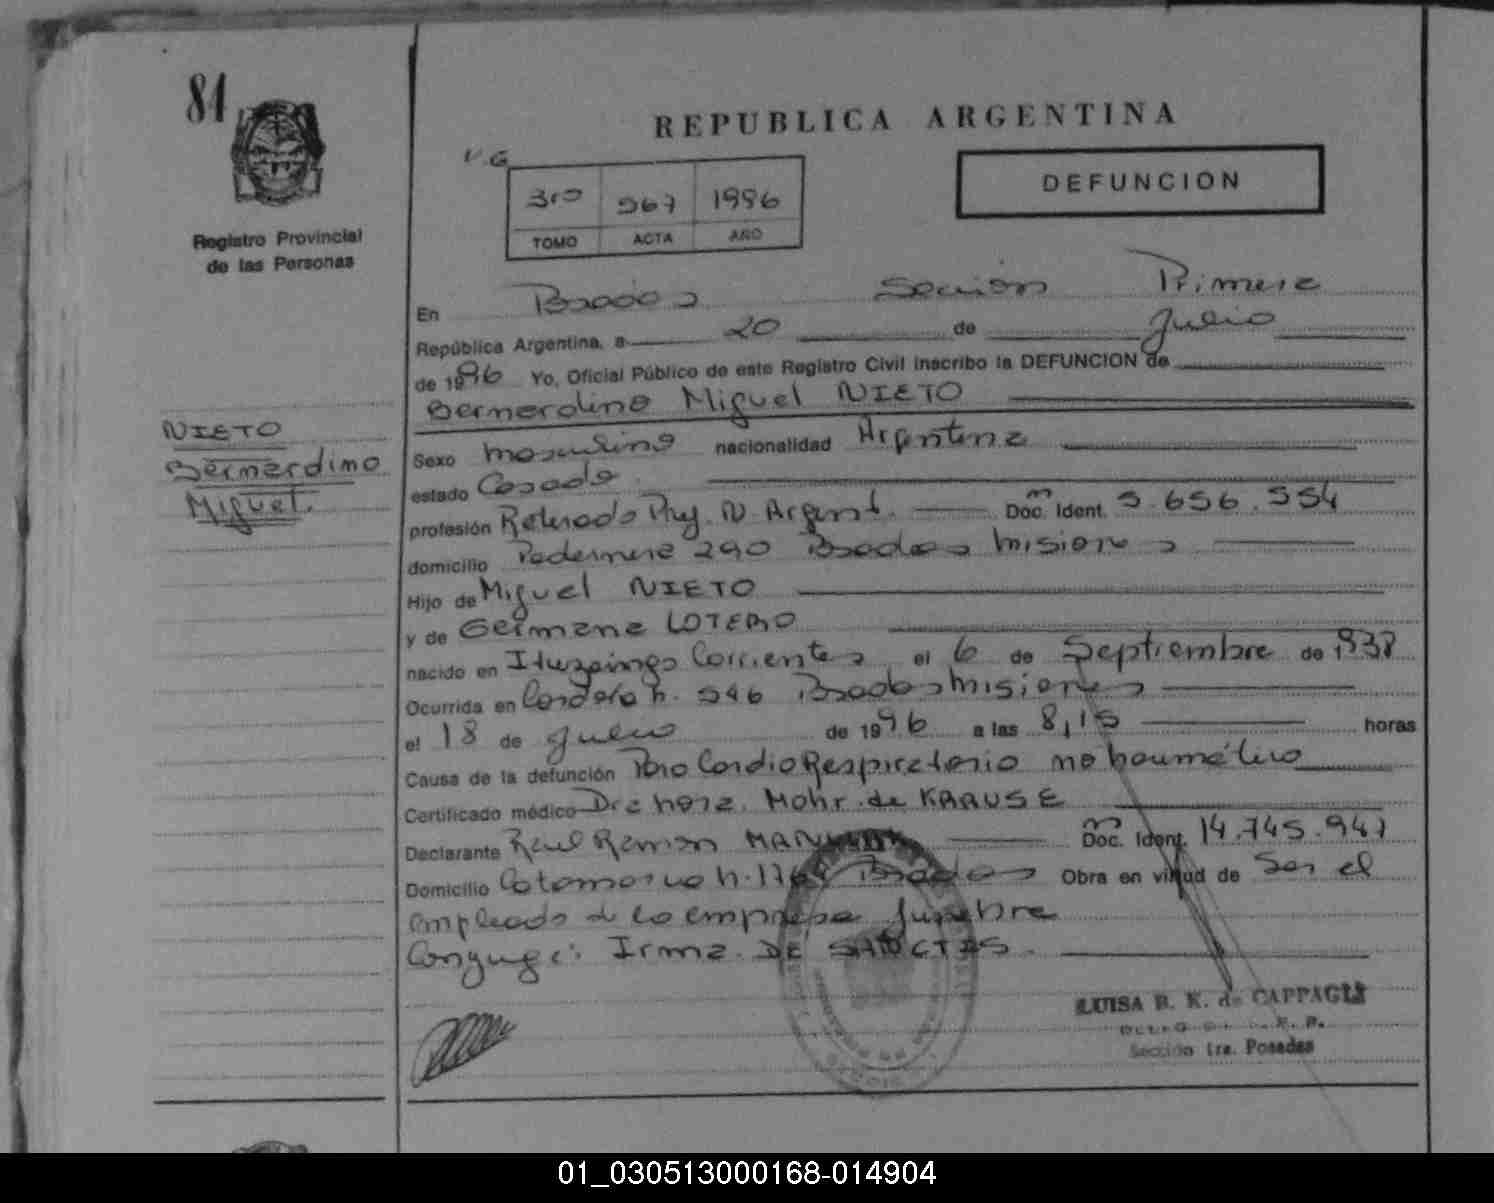 81
REPUBLICA ARGENTINA
V.G
DEFUNCION
3ro 567 1996
TOMO ACTA AÑO
Registro Provincial
de las Personas
En Posadas Sección Primera
República Argentina, a 20 de Julio
de 1996 Yo, Oficial Público de este Registro Civil inscribo la DEFUNCION de
Bernardino Miguel NIETO
NIETO
Bernardino
Miguel.
Sexo masculino nacionalidad Argentina
estado Casado
profesión Retirado Pref. N. Argent. Doc. Ident. 5.656.554
domicilio Padernera 290 Posadas Misiones
Hijo de Miguel NIETO
y de Germana LOTERO
nacido en Ituzaingo Corrientes el 6 de Septiembre de 1938
Ocurrida en Cordoba n. 546 Posadas Misiones
el 18 de Julio de 1996 a las 8,15 horas
Causa de la defunción Paro Cardio Respiratorio no traumático
Certificado médico Dra Nora. Mohr. de KRAUSE
Declarante Raul Ramon Doc. Ident. 14.745.947
Domicilio Catamarca n. Posadas Obra en virtud de Ser el
empleado de la empresa funebre
Conyuge: Irma. DE SANCTIS.
LUISA B. K. de CAPPAGLI
Sección 1ra. Posadas
01_030513000168-014904